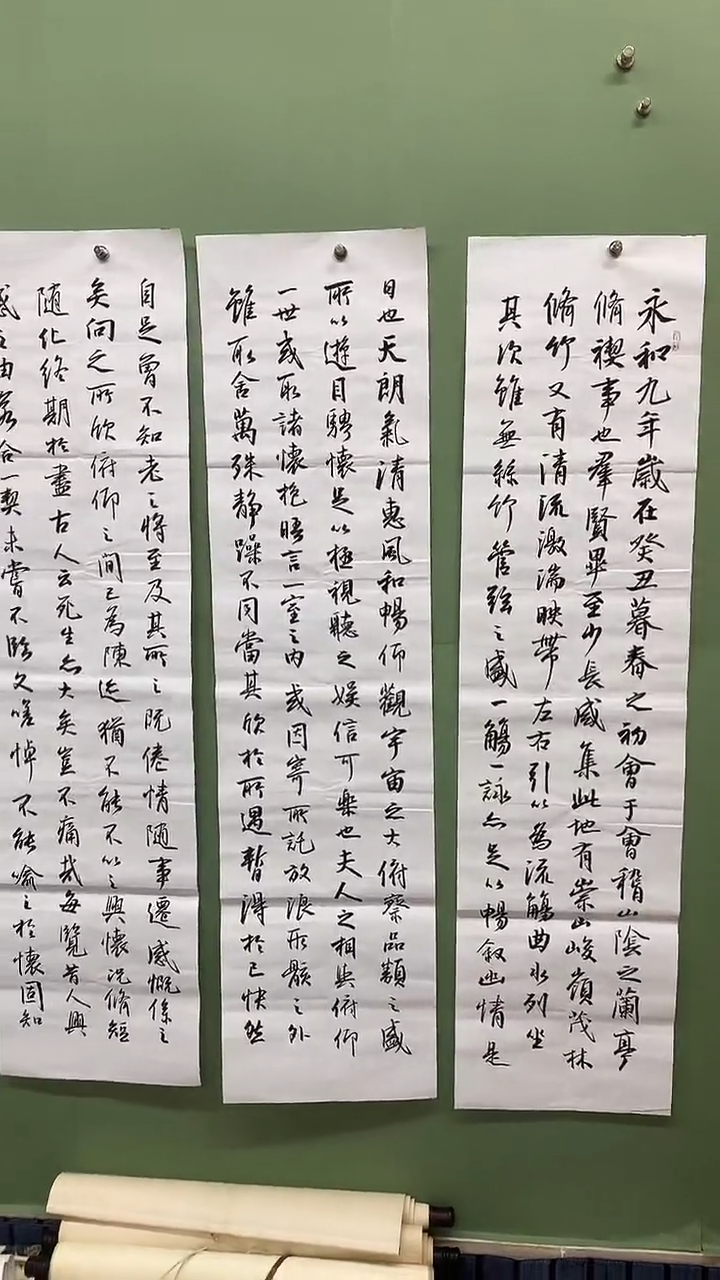 永和九年歲在癸丑暮春之初會于會稽山陰之蘭亭
脩禊事也羣賢畢至少長咸集此地有崇山峻嶺茂林
脩竹又有清流激湍映帶左右引以為流觴曲水列坐
其次雖無絲竹管弦之盛一觴一詠亦足以暢敘幽情是
日也天朗氣清惠風和暢仰觀宇宙之大俯察品類之盛
所以遊目騁懷足以極視聽之娛信可樂也夫人之相與俯仰
一世或取諸懷抱晤言一室之內或因寄所託放浪形骸之外
雖取舍萬殊靜躁不同當其欣於所遇暫得於己快然
自足曾不知老之將至及其所之既倦情隨事遷感慨係之
矣向之所欣俯仰之間已為陳迹猶不能不以之興懷況脩短
隨化終期於盡古人云死生亦大矣豈不痛哉每覽昔人興
感之由若合一契未嘗不臨文嗟悼不能喻之於懷固知